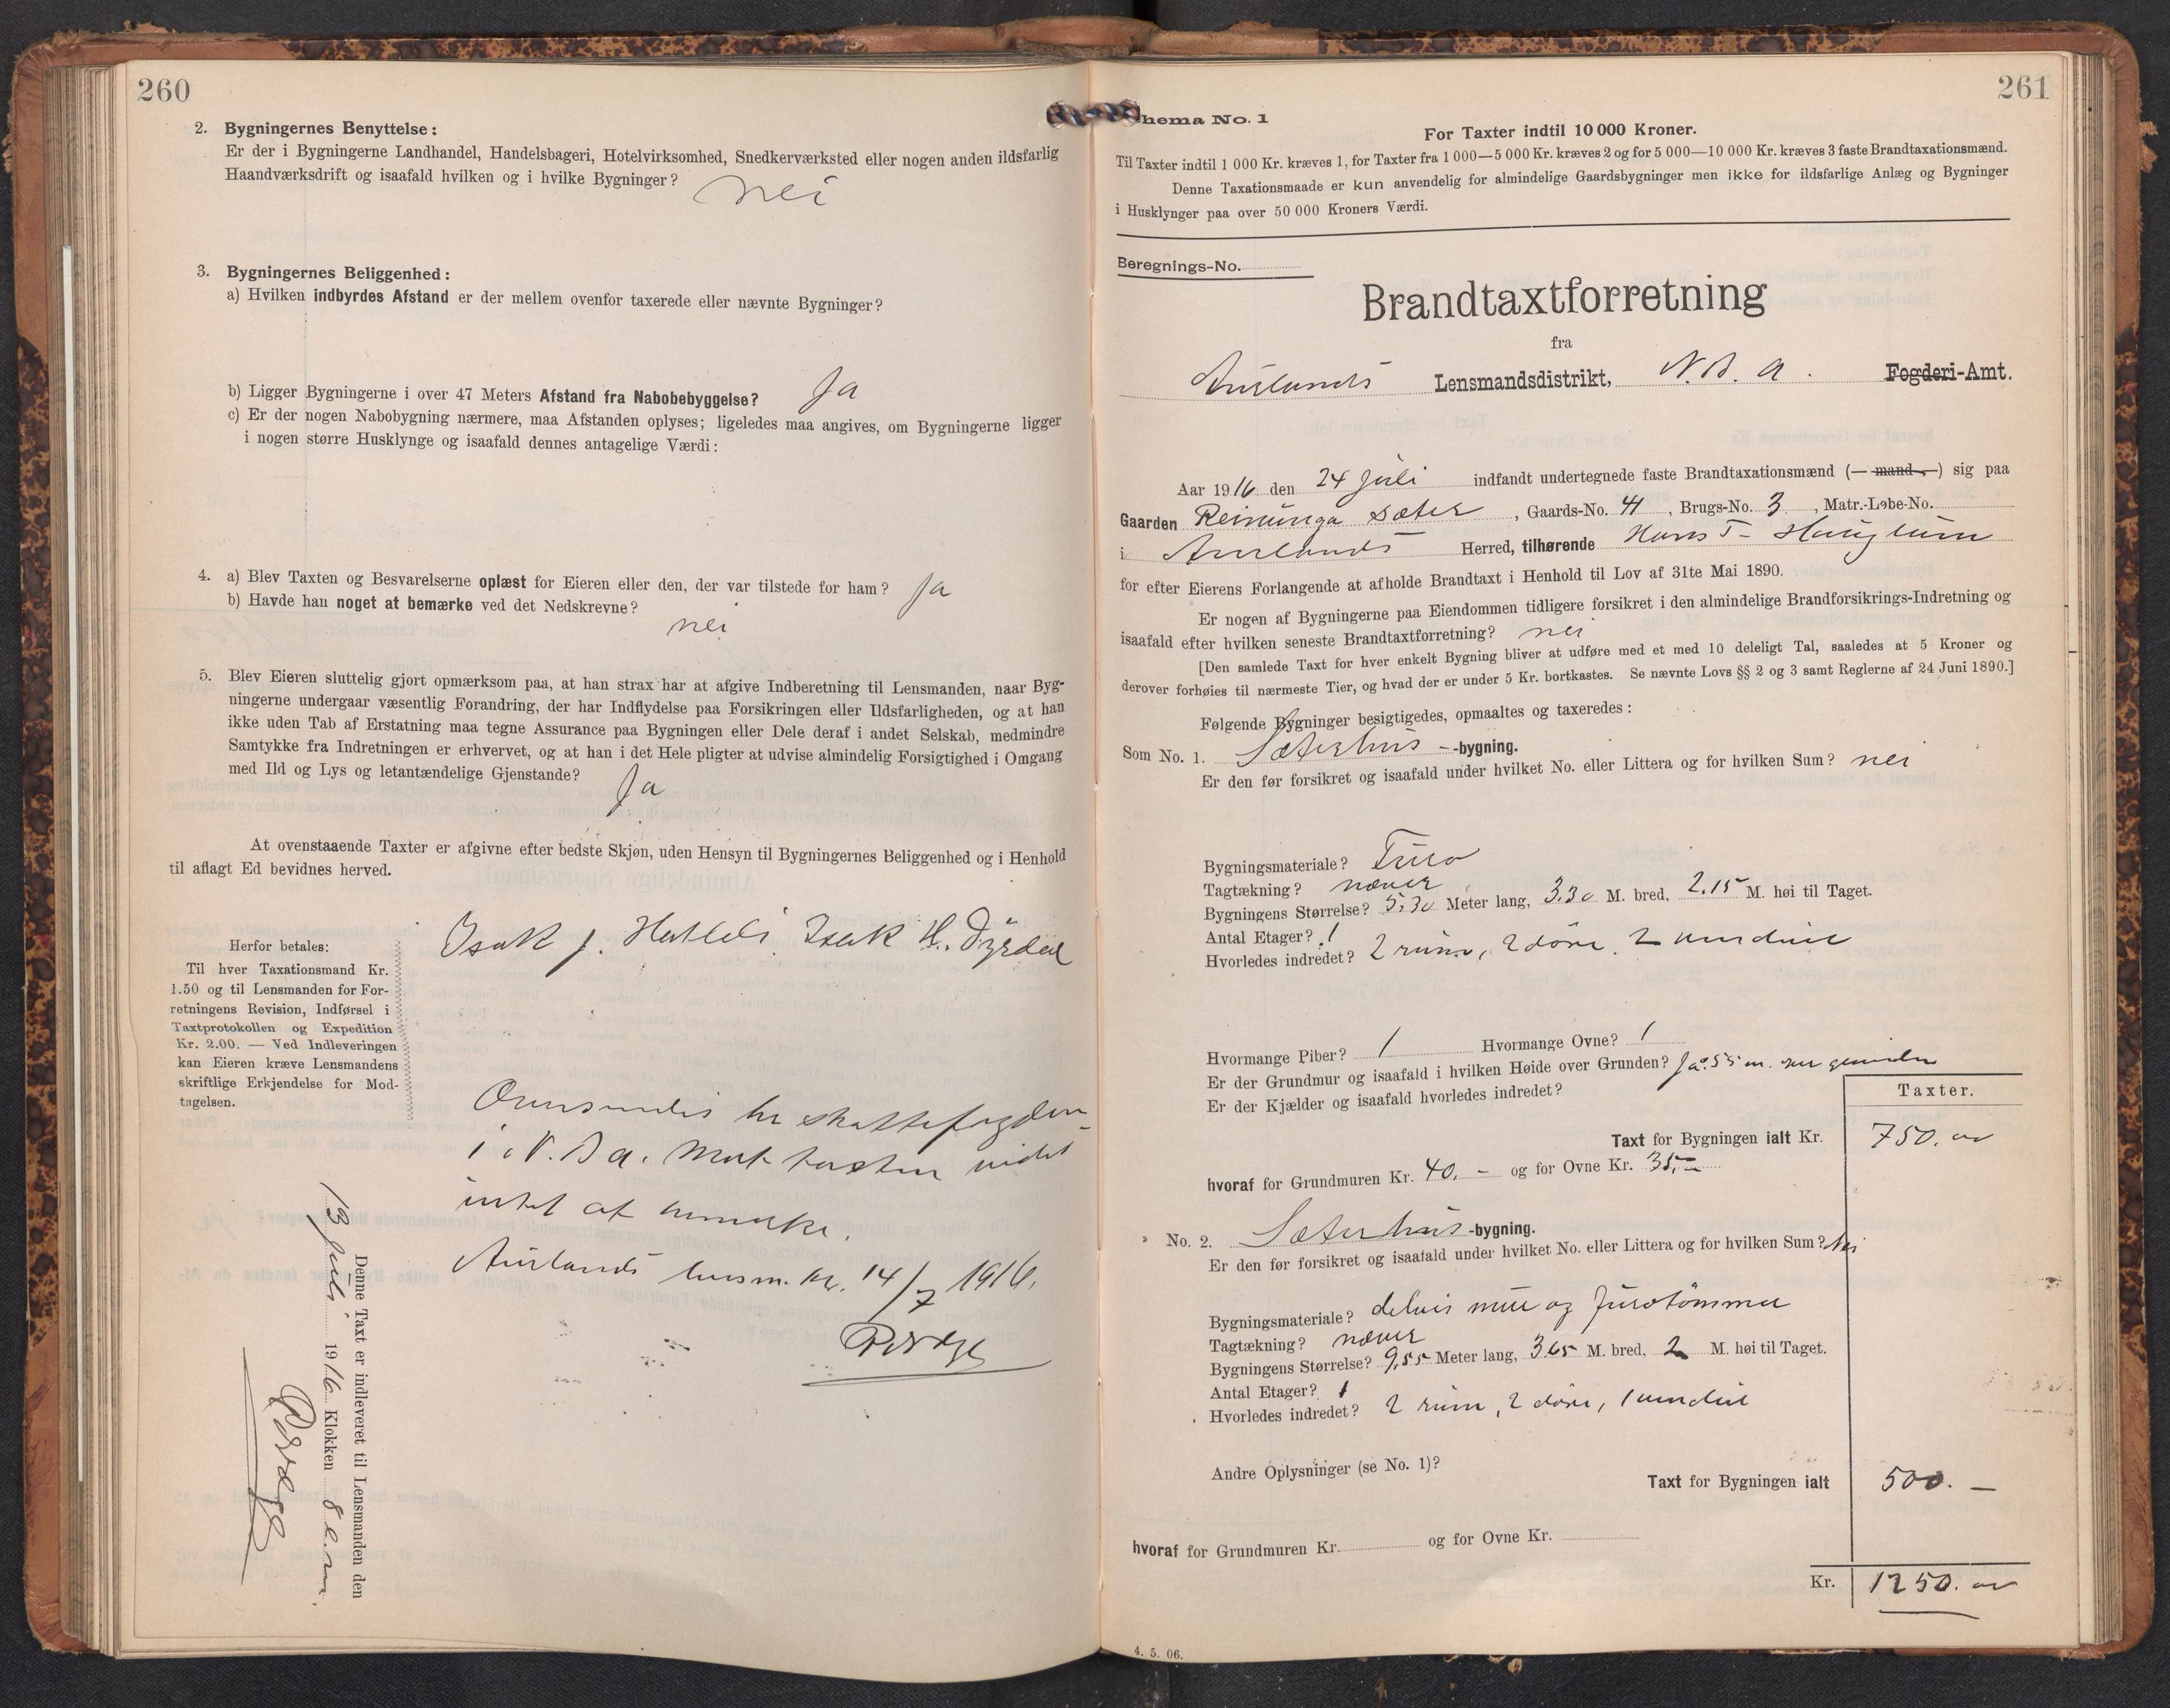 260
2. Bygningernes Benyttelse:
Er der i Bygningerne Landhandel, Handelsbageri, Hotelvirksomhed, Snedkerværksted eller nogen anden ildsfarlig
Haandværksdrift og isaafald hvilken og i hvilke Bygninger? nei
3. Bygningernes Beliggenhed:
a) Hvilken indbyrdes Afstand er der mellem ovenfor taxerede eller nævnte Bygninger?
b) Ligger Bygningerne i over 47 Meters Afstand fra Nabobebyggelse? Ja
c) Er der nogen Nabobygning nærmere, maa Afstanden oplyses; ligeledes maa angives, om Bygningerne ligger
i nogen større Husklynge og isaafald dennes antagelige Værdi:
4. a) Blev Taxten og Besvarelserne oplæst for Eieren eller den, der var tilstede for ham? Ja
b) Havde han noget at bemærke ved det Nedskrevne?
nei
5. Blev Eieren sluttelig gjort opmærksom paa, at han strax har at afgive Indberetning til Lensmanden, naar Byg-
ningerne undergaar væsentlig Forandring, der har Indflydelse paa Forsikringen eller Ildsfarligheden, og at han
ikke uden Tab af Erstatning maa tegne Assurance paa Bygningen eller Dele deraf i andet Selskab, medmindre
Samtykke fra Indretningen er erhvervet, og at han i det Hele pligter at udvise almindelig Forsigtighed i Omgang
med Ild og Lys og letantændelige Gjenstande? Ja
At ovenstaaende Taxter er afgivne efter bedste Skjøn, uden Hensyn til Bygningernes Beliggenhed og i Henhold
til aflagt Ed bevidnes herved.
Isak J. Hatleli Isak H. Dyrdal
Herfor betales:
Til hver Taxationsmand Kr.
1.50 og til Lensmanden for For-
retningens Revision, Indførsel i
Taxtprotokollen og Expedition
Kr. 2.00. — Ved Indleveringen
kan Eieren kræve Lensmandens
skriftlige Erkjendelse for Mod-
tagelsen.
Oversendes hr skattefogden
i N. B a. Mot taxten vides
intet at bemerke.
Aurlands lensm. kt. 14/7 1916.
Denne Taxt er indleveret til Lensmanden den
13 Juli 1916 Klokken 8 e.m.
261
hema No. 1
For Taxter indtil 10 000 Kroner.
Til Taxter indtil 1 000 Kr. kræves 1, for Taxter fra 1 000—5 000 Kr. kræves 2 og for 5 000—10 000 Kr. kræves 3 faste Brandtaxationsmænd.
Denne Taxationsmaade er kun anvendelig for almindelige Gaardsbygninger men ikke for ildsfarlige Anlæg og Bygninger
i Husklynger paa over 50 000 Kroners Værdi.
Beregnings-No.
Brandtaxtforretning
fra
Aurlands Lensmandsdistrikt, N. B. a. Fogderi-Amt.
Aar 1916 den 24 juli indfandt undertegnede faste Brandtaxationsmænd (— mand —) sig paa
Gaarden Reinunga sæter, Gaards-No. 41, Brugs-No. 3, Matr.-Løbe-No.
i Aurlands Herred, tilhørende Hans T. Haugtun
for efter Eierens Forlangende at afholde Brandtaxt i Henhold til Lov af 31te Mai 1890.
Er nogen af Bygningerne paa Eiendommen tidligere forsikret i den almindelige Brandforsikrings-Indretning og
isaafald efter hvilken seneste Brandtaxtforretning? nei
[Den samlede Taxt for hver enkelt Bygning bliver at udføre med et med 10 deleligt Tal, saaledes at 5 Kroner og
derover forhøies til nærmeste Tier, og hvad der er under 5 Kr. bortkastes. Se nævnte Lovs §§ 2 og 3 samt Reglerne af 24 Juni 1890.]
Følgende Bygninger besigtigedes, opmaaltes og taxeredes:
Som No. 1. Sæterhus -bygning.
Er den før forsikret og isaafald under hvilket No. eller Littera og for hvilken Sum? nei
Bygningsmateriale? Furo
Tagtækning? næver
Bygningens Størrelse? 5.30 Meter lang, 3.30 M. bred, 2.15 M. høi til Taget.
Antal Etager? 1
Hvorledes indredet? 2 rum, 2 döre, 2 vinduer
Hvormange Piber? 1 Hvormange Ovne? 1
Er der Grundmur og isaafald i hvilken Høide over Grunden? Ja 0.55 m. over grunden
Er der Kjælder og isaafald hvorledes indredet?
Taxter.
Taxt for Bygningen ialt Kr. 750. 00
hvoraf for Grundmuren Kr. 40. — og for Ovne Kr. 35. —
No. 2. Sæterhus -bygning.
Er den før forsikret og isaafald under hvilket No. eller Littera og for hvilken Sum? Nei
Bygningsmateriale? delvis mur og furotömmer
Tagtækning? næver
Bygningens Størrelse? 9,55 Meter lang, 3.65 M. bred, 2 M. høi til Taget.
Antal Etager? 1
Hvorledes indredet? 2 rum, 2 döre, 1 vindue
Andre Oplysninger (se No. 1)?
Taxt for Bygningen ialt 500. —
hvoraf for Grundmuren Kr. og for Ovne Kr.
Kr. 1250. 00
4. 5. 06.